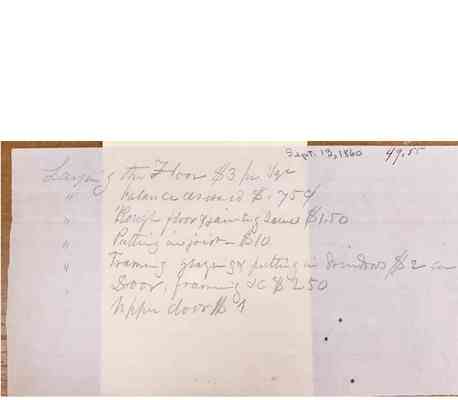 Sept. 13, 1860 49.55
Laying the Floor $3 pr. Sqr
" balance as said $.75¢
" Rough floor & painting Same $1.50
" Putting in joist - $10
" Framing glazing & putting in Windows $2
" Door, framing &c $2.50
Upper door $1